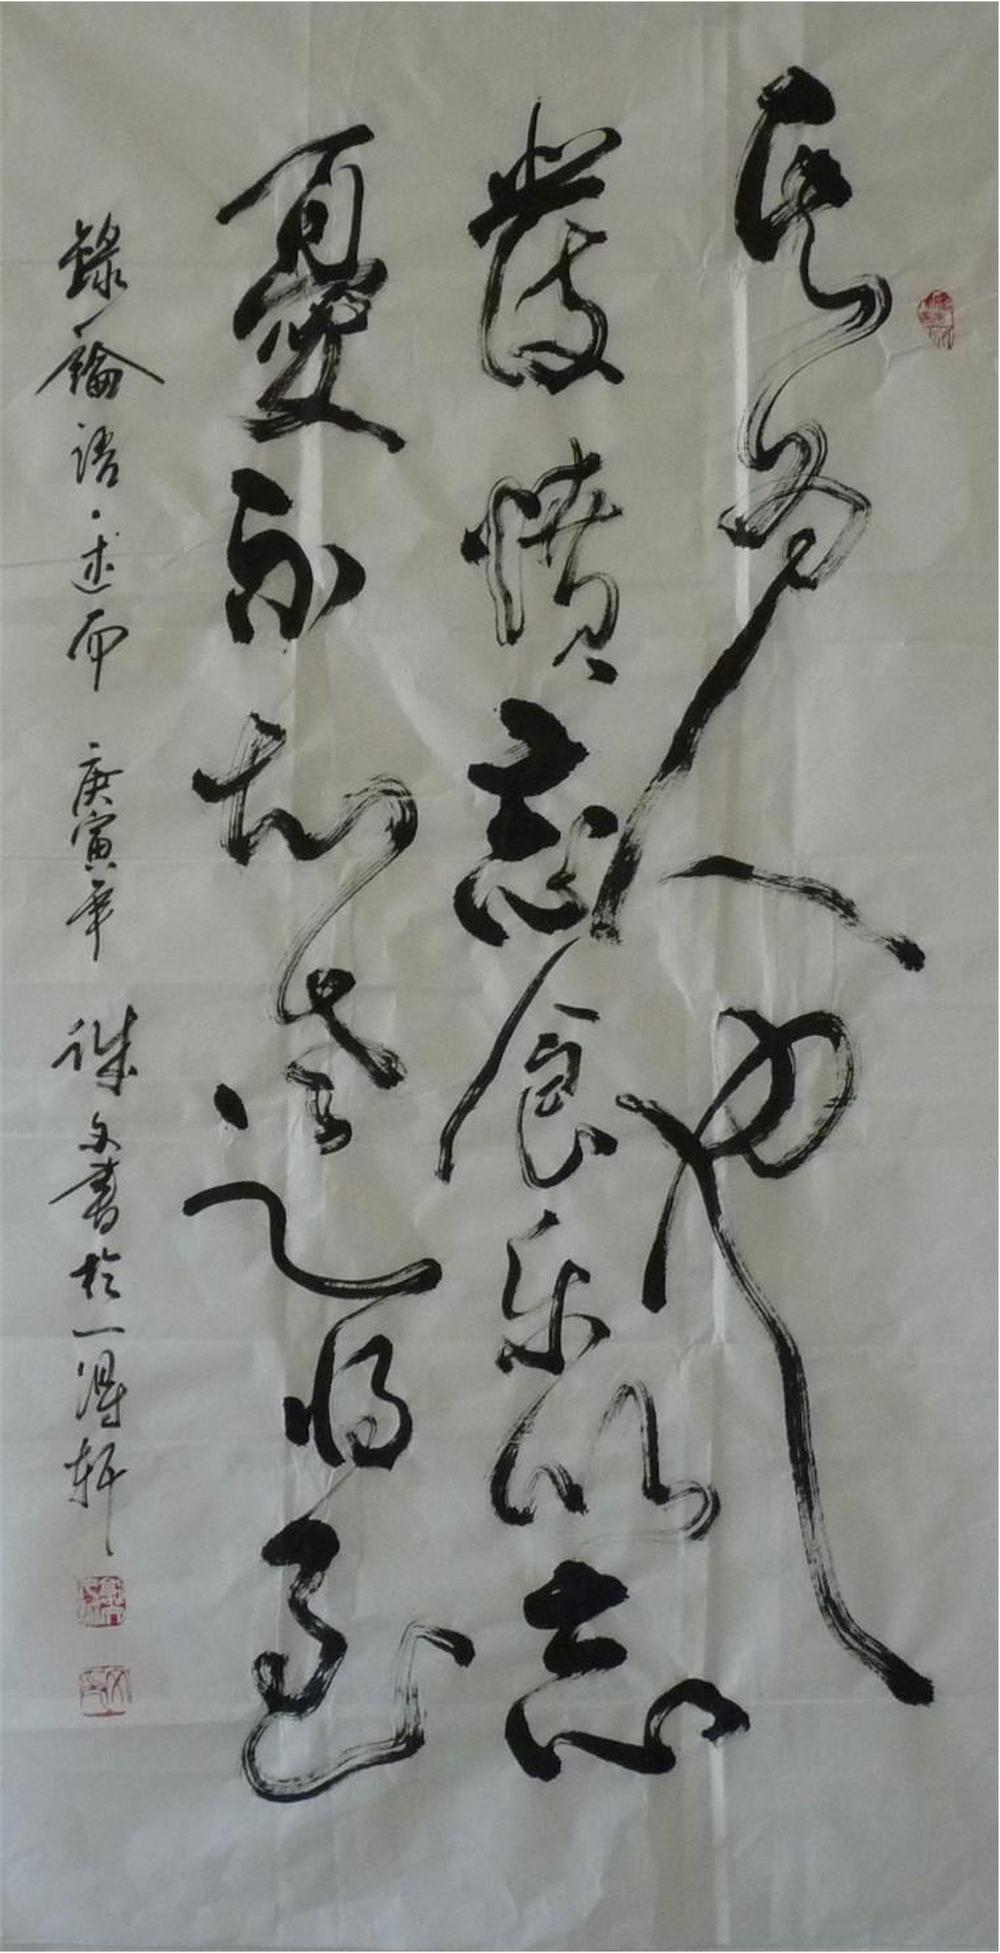 其為人也
發憤忘食乐以忘
憂不知老之将至
錄論語·述而 庚寅年 文書於一得軒